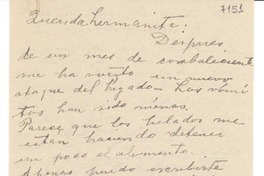 7151
Querida hermanita:
Después
de un mes de convaleciente
me ha vuelto un nuevo
ataque del hígado - Los vómi
tos han sido menos.
Parece que los helados me
están haciendo detener
un poco el alimento.
Apenas puedo escribirte